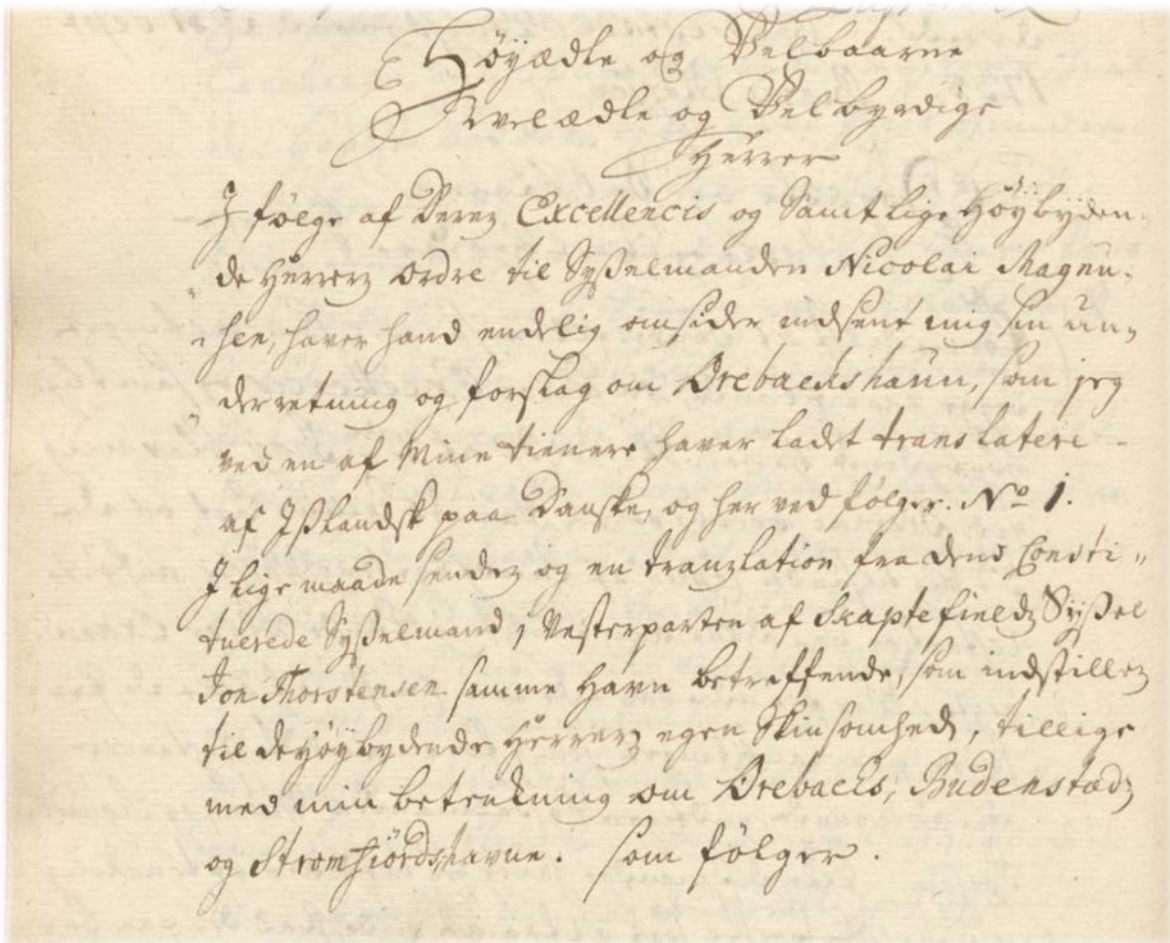 Høyædle og Velbaarne
Hvelædle og Velbyrdige
Herrer
I følge af Deres Excellencis og Samtlige Høybyden-
de Herrers Ordre til Sysselmanden Nicolai Magnu-
sen, haver hand endelig omsider indsent mig sin un-
derretning og forslag om Ørebachshaun, som jeg
ved en af Mine tienere haver ladet translatere
af Isslandsk paa Danske, og her ved følger. No 1.
I lige maade sendes og en translation fra dend Consti-
tuerede Sysselmand i Vesterparten af Skaptefields Syssel
Jon Thorstensen samme Havn betreffende, som indstilles
til de Høybydende Herrers egen Skiønsomhed, tillige
med min betenkning om Ørebachs, Budenstads
og Stromfiords havne. som følger.